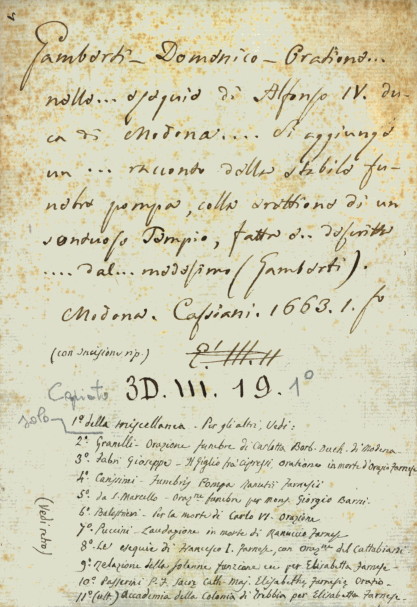 Gamberti - Domenico - Orazione...
nelle... esequie di Alfonso IV. du-
ca di Modena.... Si aggiunge
un ... racconto della stabile fu-
nebre pompa, colla erettione di un
sontuoso Tempio, fatta e.. descritta
.... dal... medesimo (Gamberti).
Modena. Cassiani. 1663. 1. fo
(con incisione rip.) E! III. 11
3D. III. 19. 1º
Copiato
solo
1º della miscellanea. Per gli altri, Vedi:
2º Granelli - Orazione funebre di Carlotta Dorb. Duch. di Modena
3º Fabri Gioseppe - Il Giglio fra' Cipressi, Orationes in morte d'Orazio Farnese
4º Canissimi - Funebris Pompa Ranutii Farnesii
5º da S. Marcello - Oraz.ne funebre per mons. Giorgio Barni.
6º Balestrieri - Per la morte di Carlo VI - Orazione
7º Puccini - Laudazione in morte di Ranuccio Farnese
8º Le esequie di Francesco I. Farnese, con Oraz.ne del Cattabiani
9º Relazione della solenne funzione ec. per Elisabetta Farnese
10º P. F. Sacr. Cath. Maj. Elisabethæ Farnesiæ Oratio -
11º (ult.) Accademia della Colonia di Trebbia per Elisabetta Farnese -
(Vedi retro)